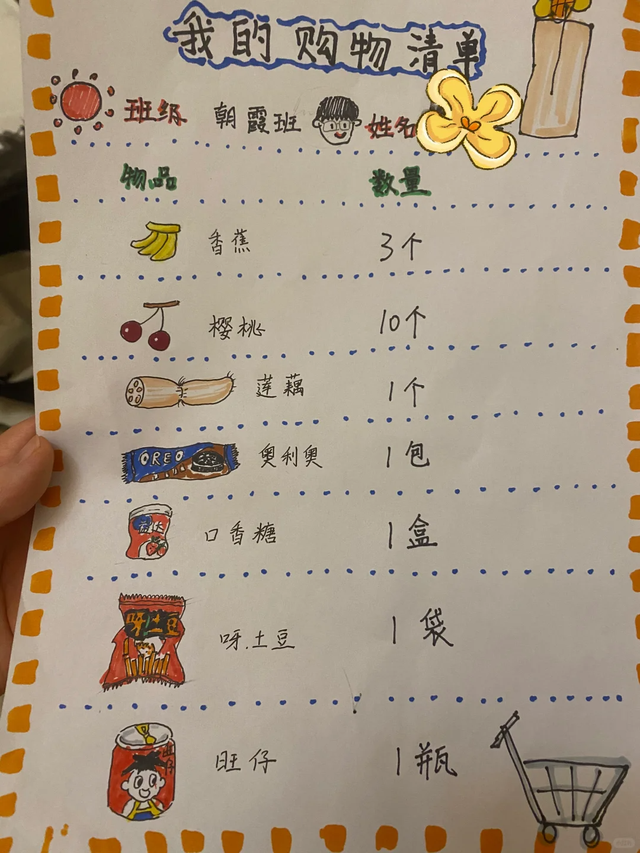 我的购物清单
班级 朝霞班 姓名
物品 数量
香蕉 3个
樱桃 10个
莲藕 1个
OREO 奥利奥 1包
益达 口香糖 1盒
呀!土豆 呀.土豆 1袋
旺仔 旺仔 1瓶